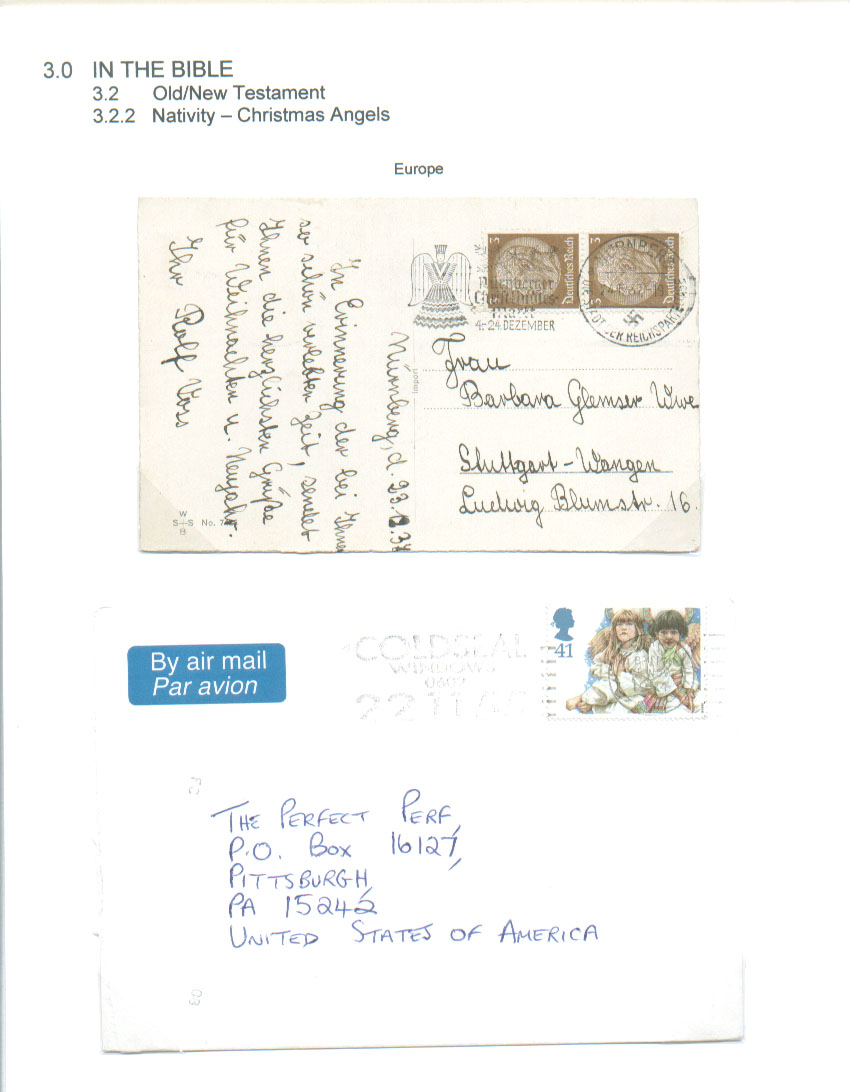 3.0 IN THE BIBLE
3.2 Old/New Testament
3.2.2 Nativity – Christmas Angels
Europe
Nürnberg, d. 23.12.34
In Erinnerung der bei Ihnen
so schön verlebten Zeit, sendet
Ihnen die herzlichsten Grüße
für Weihnachten u. Neujahr.
Ihr Rolf Voss
W
S+S No.
B
Import
3 Deutsches Reich
3 Deutsches Reich
Nürnberger
Christkindles-
Markt
4.-24.DEZEMBER
NÜRNBERG
STADT DER REICHSPARTEITAGE
Frau
Barbara Glemser Wwe
Stuttgart-Wangen
Ludwig Blumstr. 16.
By air mail
Par avion
COLDSEAL
WINDOWS
41
THE PERFECT PERF,
P.O. BOX 16127,
PITTSBURGH,
PA 15242
UNITED STATES OF AMERICA